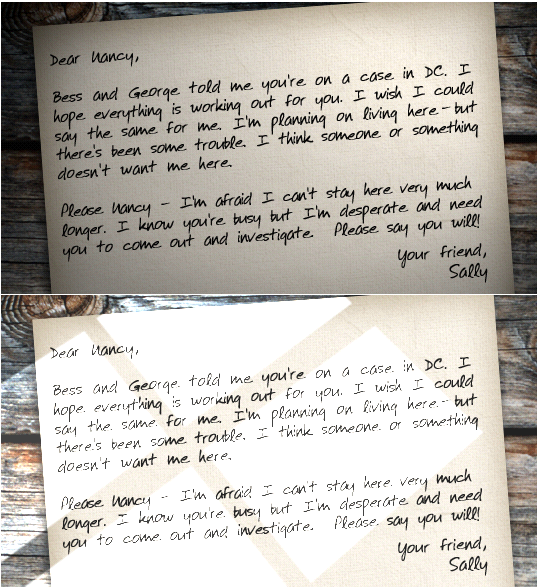 Dear Nancy,
Bess and George told me you're on a case in DC. I
hope everything is working out for you. I wish I could
say the same for me. I'm planning on living here - but
there's been some trouble. I think someone or something
doesn't want me here.
Please Nancy - I'm afraid I can't stay here very much
longer. I know you're busy but I'm desperate and need
you to come out and investigate. Please say you will!
Your friend,
Sally
Dear Nancy,
Bess and George told me you're on a case in DC. I
hope everything is working out for you. I wish I could
say the same for me. I'm planning on living here - but
there's been some trouble. I think someone or something
doesn't want me here.
Please Nancy - I'm afraid I can't stay here very much
longer. I know you're busy but I'm desperate and need
you to come out and investigate. Please say you will!
Your friend,
Sally